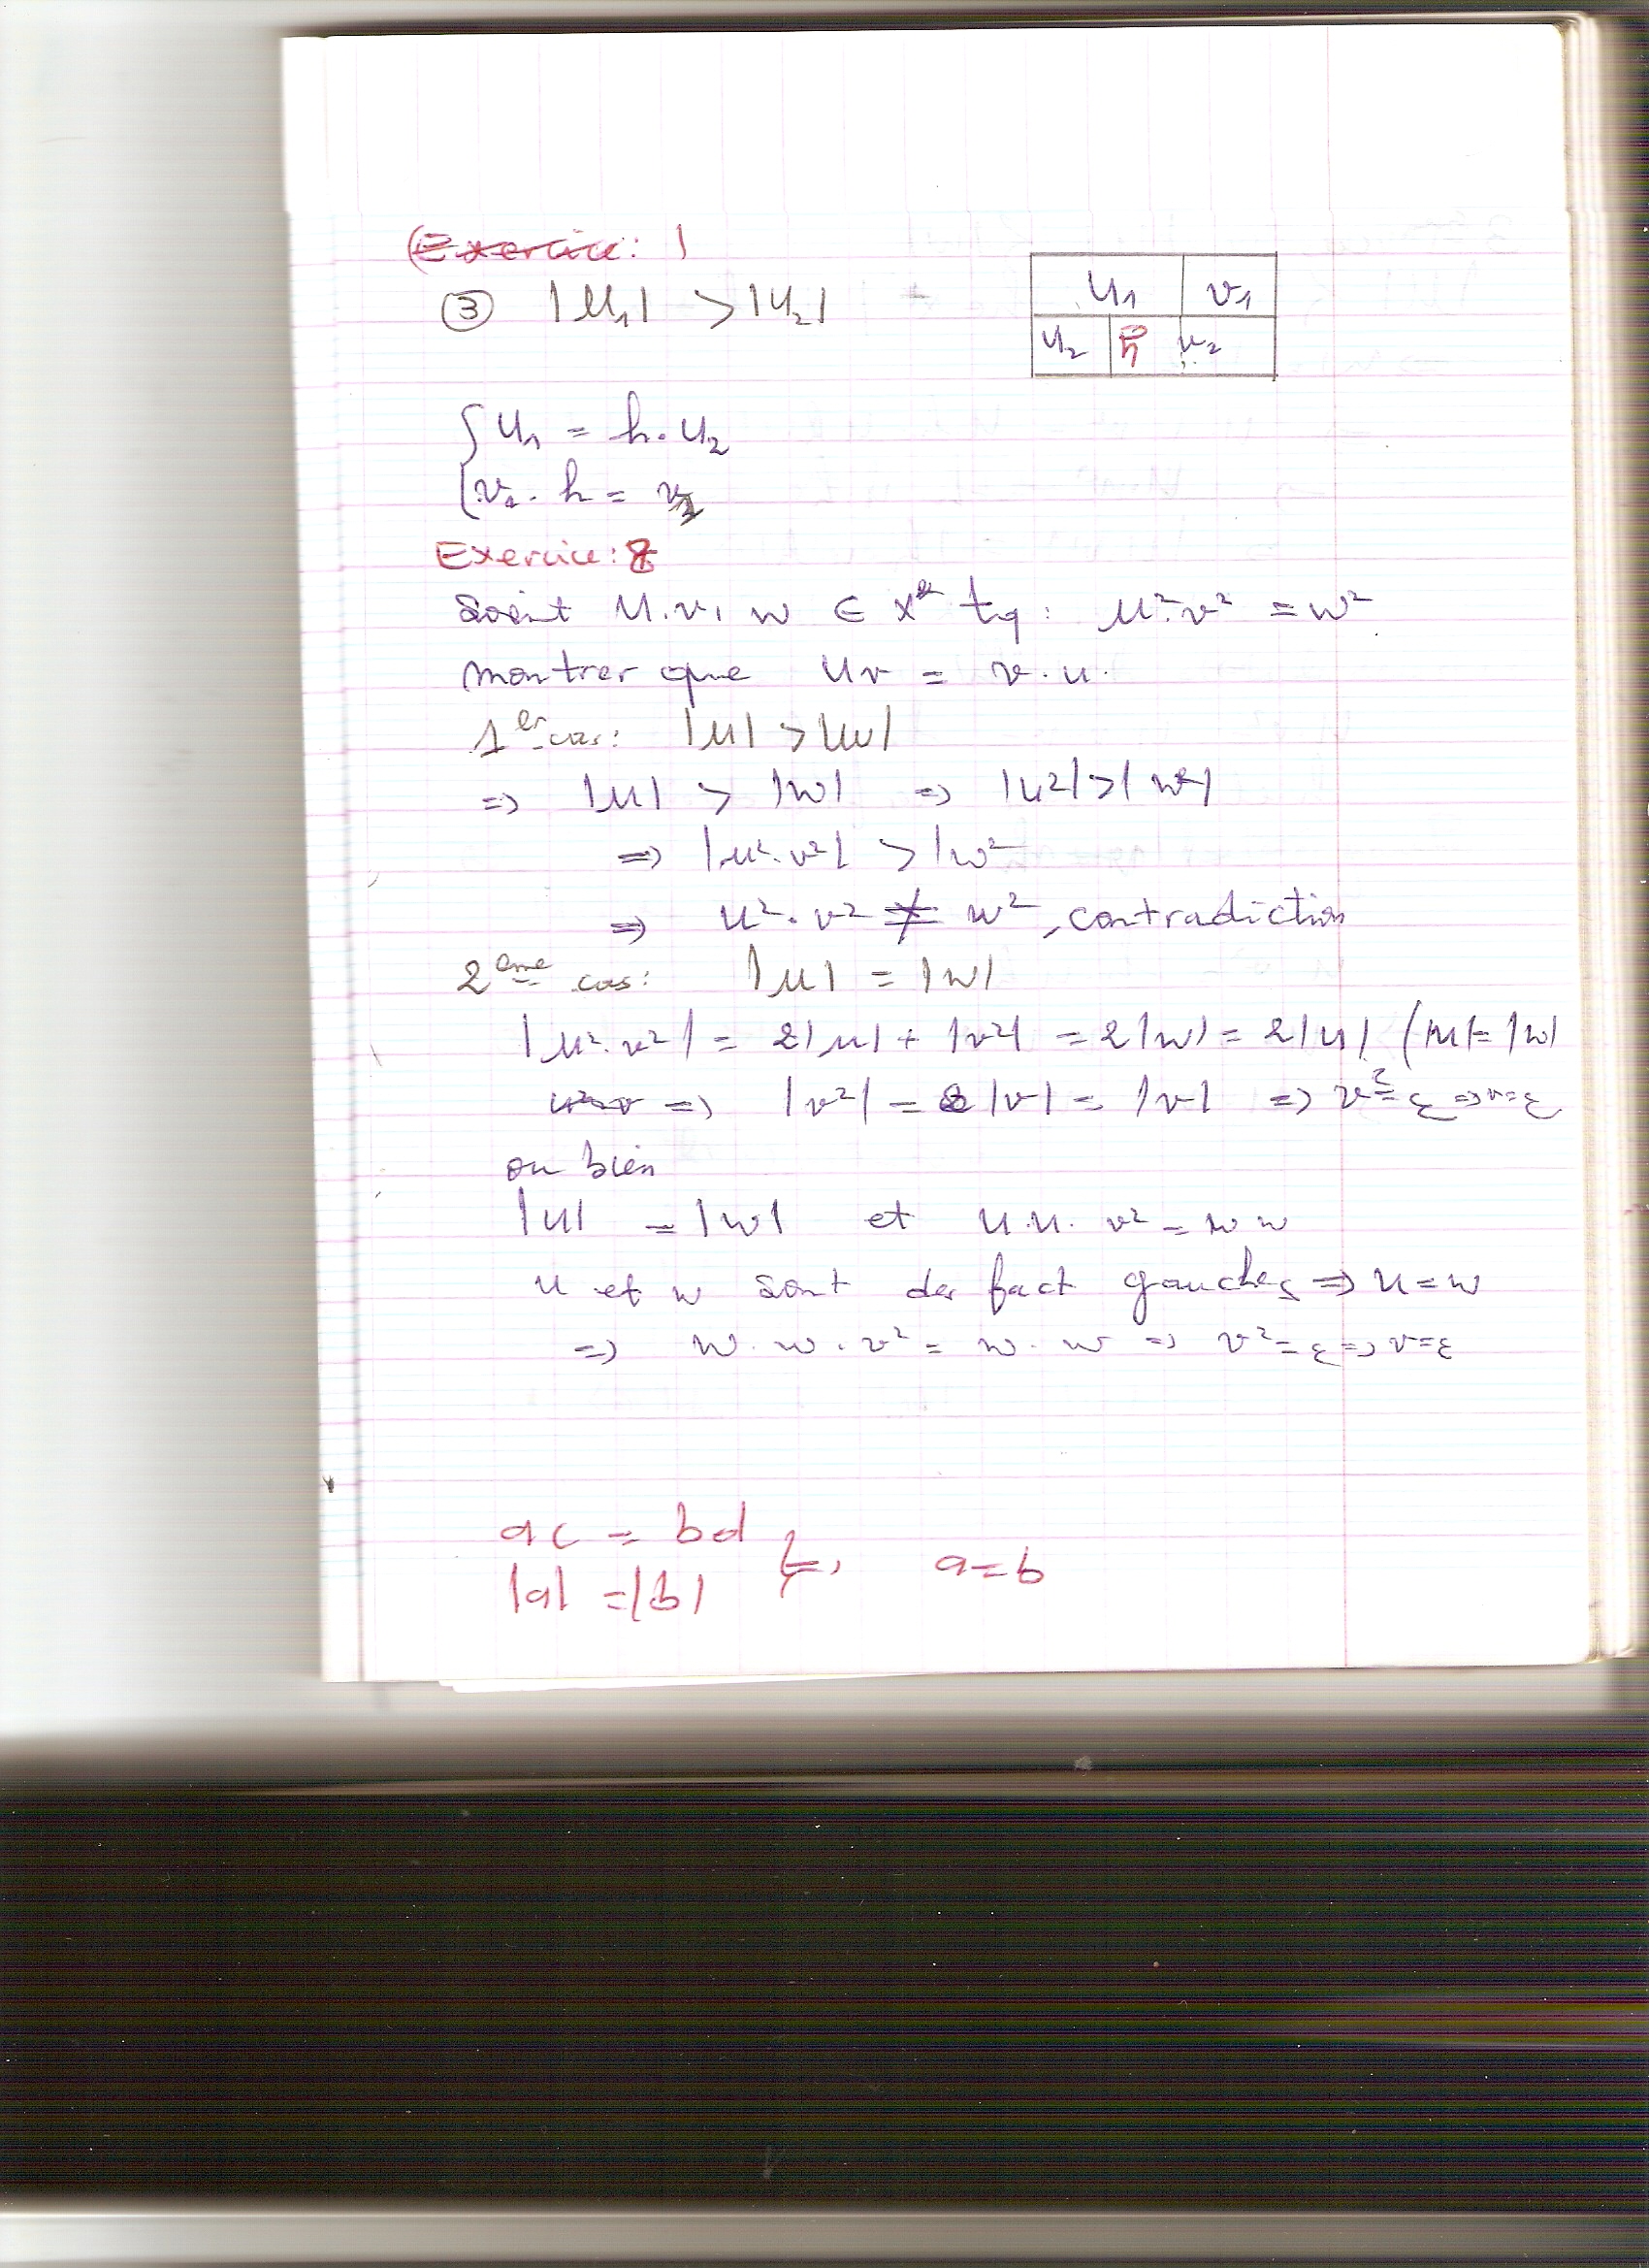 Exercice: 1
③ |u₁| > |u₂|
u₁ v₁
u₂ h v₂
{ u₁ = h. u₂
{ v₂. h = v₂
Exercice: 8
Soient u. v, w ∈ X* tq: u². v² = w²
montrer que uv = v. u.
1er cas: |u| > |w|
=> |u| > |w| => |u2| > |w²|
=> |u². v²| > |w²
=> u². v² ≠ w², contradiction
2eme cas: |u| = |w|
|u². v²| = 2|u| + |v2| = 2|w| = 2|u| (|u| = |w|
=> |v²| = 2|v| = |v| => v² = ε => v = ε
ou bien
|u| = |w| et u. u. v² = w w
u et w sont des fact gauches => u = w
=> w. w. v² = w. w => v² = ε => v = ε
ac = bd
|a| = |b| } => a = b